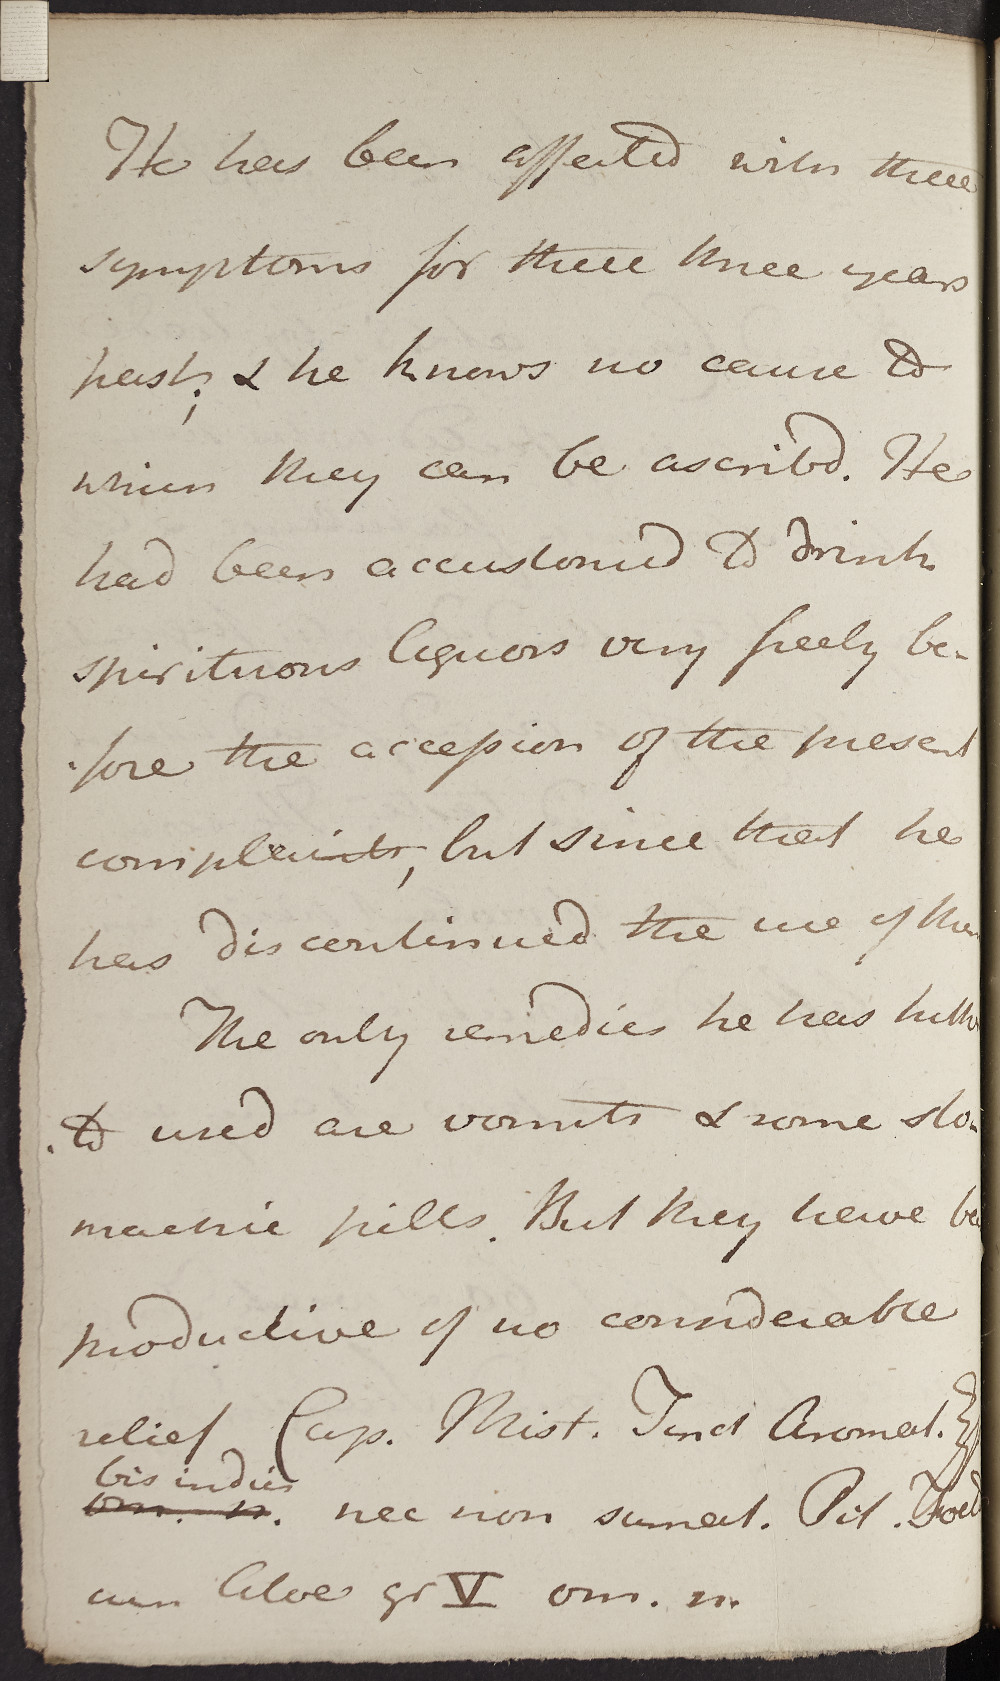 He has been affected with these
symptoms for these three years
past; & he knows no cause to
which they can be ascribd. He
had been accustomed to drink
spirituous liquors very freely be-
-fore the accession of the present
complaints, but since that he
has discontinued the use of them
The only remedies he has hither
-to used are vomits & some sto-
machic pills. But they have been
productive of no considerable
relief Cap. Mist. Tinct Aromat. ℥j
bis indies
om. n. nec non sumat. Pil. Foetid
cum Aloe gr V om. n.